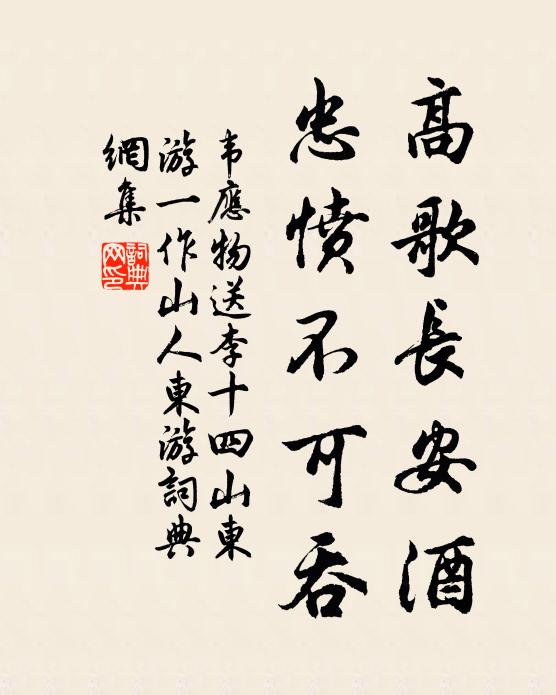 高歌長安酒
忠憤不可吞
韦應物送李十四山東
游一作山人東游詞典
網集
詞典網印